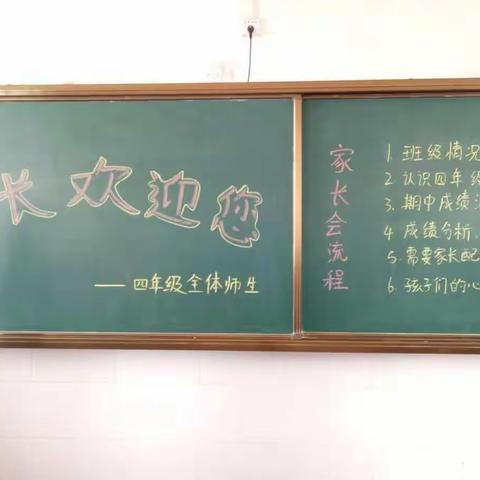 长欢迎您
——四年级全体师生
家长会流程
1. 班级情况
2. 认识四年级
3. 期中成绩
4. 成绩分析.
5. 需要家长配
6. 孩子们的心